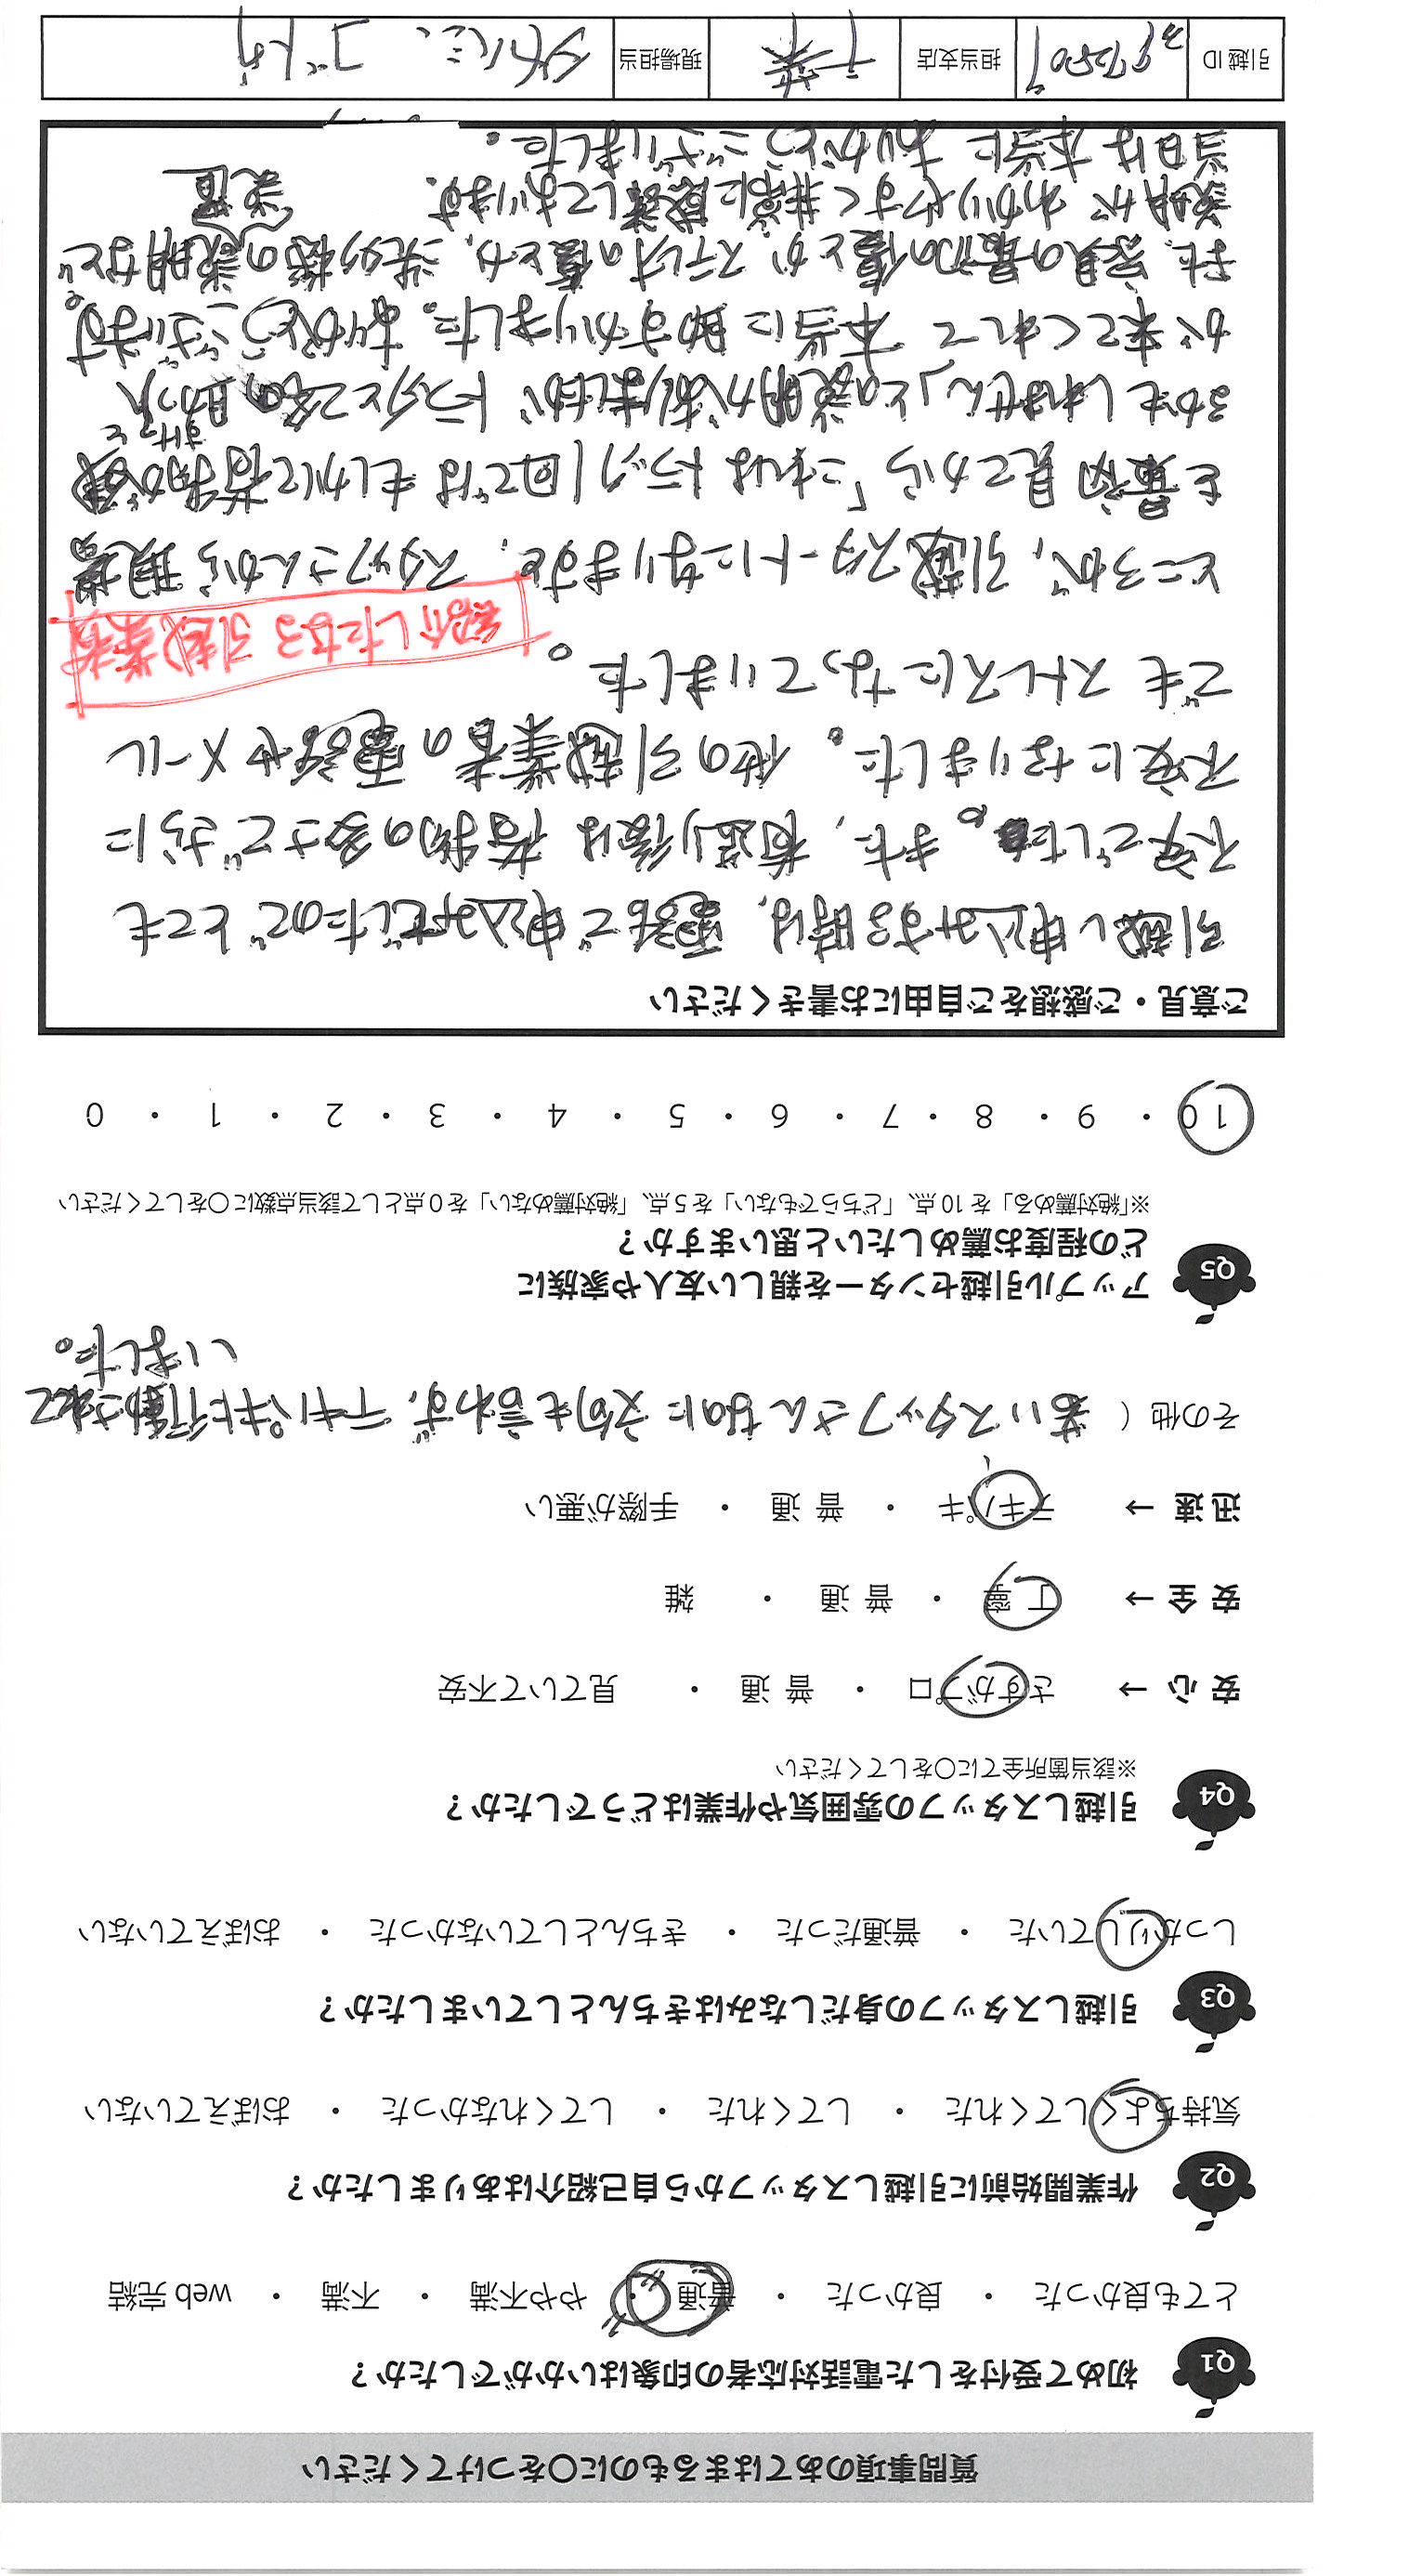 質問事項のあてはまるものに〇をつけてください
Q1 初めて受付をした電話対応者の印象はいかがでしたか？
とても良かった ・ 良かった ・ 普通 ・ やや不満 ・ 不満 ・ web 完結
Q2 作業開始前に引越しスタッフから自己紹介はありましたか？
気持ちよくしてくれた ・ してくれた ・ してくれなかった ・ おぼえていない
Q3 引越しスタッフの身だしなみはきちんとしていましたか？
しっかりしていた ・ 普通だった ・ きちんとしていなかった ・ おぼえていない
Q4 引越しスタッフの雰囲気や作業はどうでしたか？
※該当箇所全てに〇をしてください
安 心 → さすがプロ ・ 普 通 ・ 見ていて不安
安 全 → 丁 寧 ・ 普 通 ・ 雑
迅 速 → テキパキ ・ 普 通 ・ 手際が悪い
その他（ 若いスタッフさんなのに文句も言わず、テキパキと行動されて
いました。
Q5 アップル引越センターを親しい友人や家族に
どの程度お薦めしたいと思いますか？
※「絶対薦める」を 10 点、「どちらでもない」を 5 点、「絶対薦めない」を 0 点として該当点数に〇をしてください
10 ・ 9 ・ 8 ・ 7 ・ 6 ・ 5 ・ 4 ・ 3 ・ 2 ・ 1 ・ 0
ご意見・ご感想をご自由にお書きください
引越し申込みする時は、電話で申込みでしたのでとても
不安でした。また、荷造り後は荷物の多さでさらに
不安になりました。他の引越業者の電話やメール
でもストレスになっていました。
紹介したなる引越業者
ところが、引越スタートになりますと、スタッフさんから現場
を最初見てから「これはトラック1回ではもしかして荷物が残
るかもしれません」との説明がありましたが トラックと2名の助っ人
すけっと
が来てくれて 本当に助すかりました。ありがとうございます。
また、家具の最初の傷とか ステレオの傷とか、洗タク機の説明など
設置
説明が わかりやすく非常に感謝しております。
当日は本当に ありがとうございました。
引越 ID 担当支店 千葉 現場担当